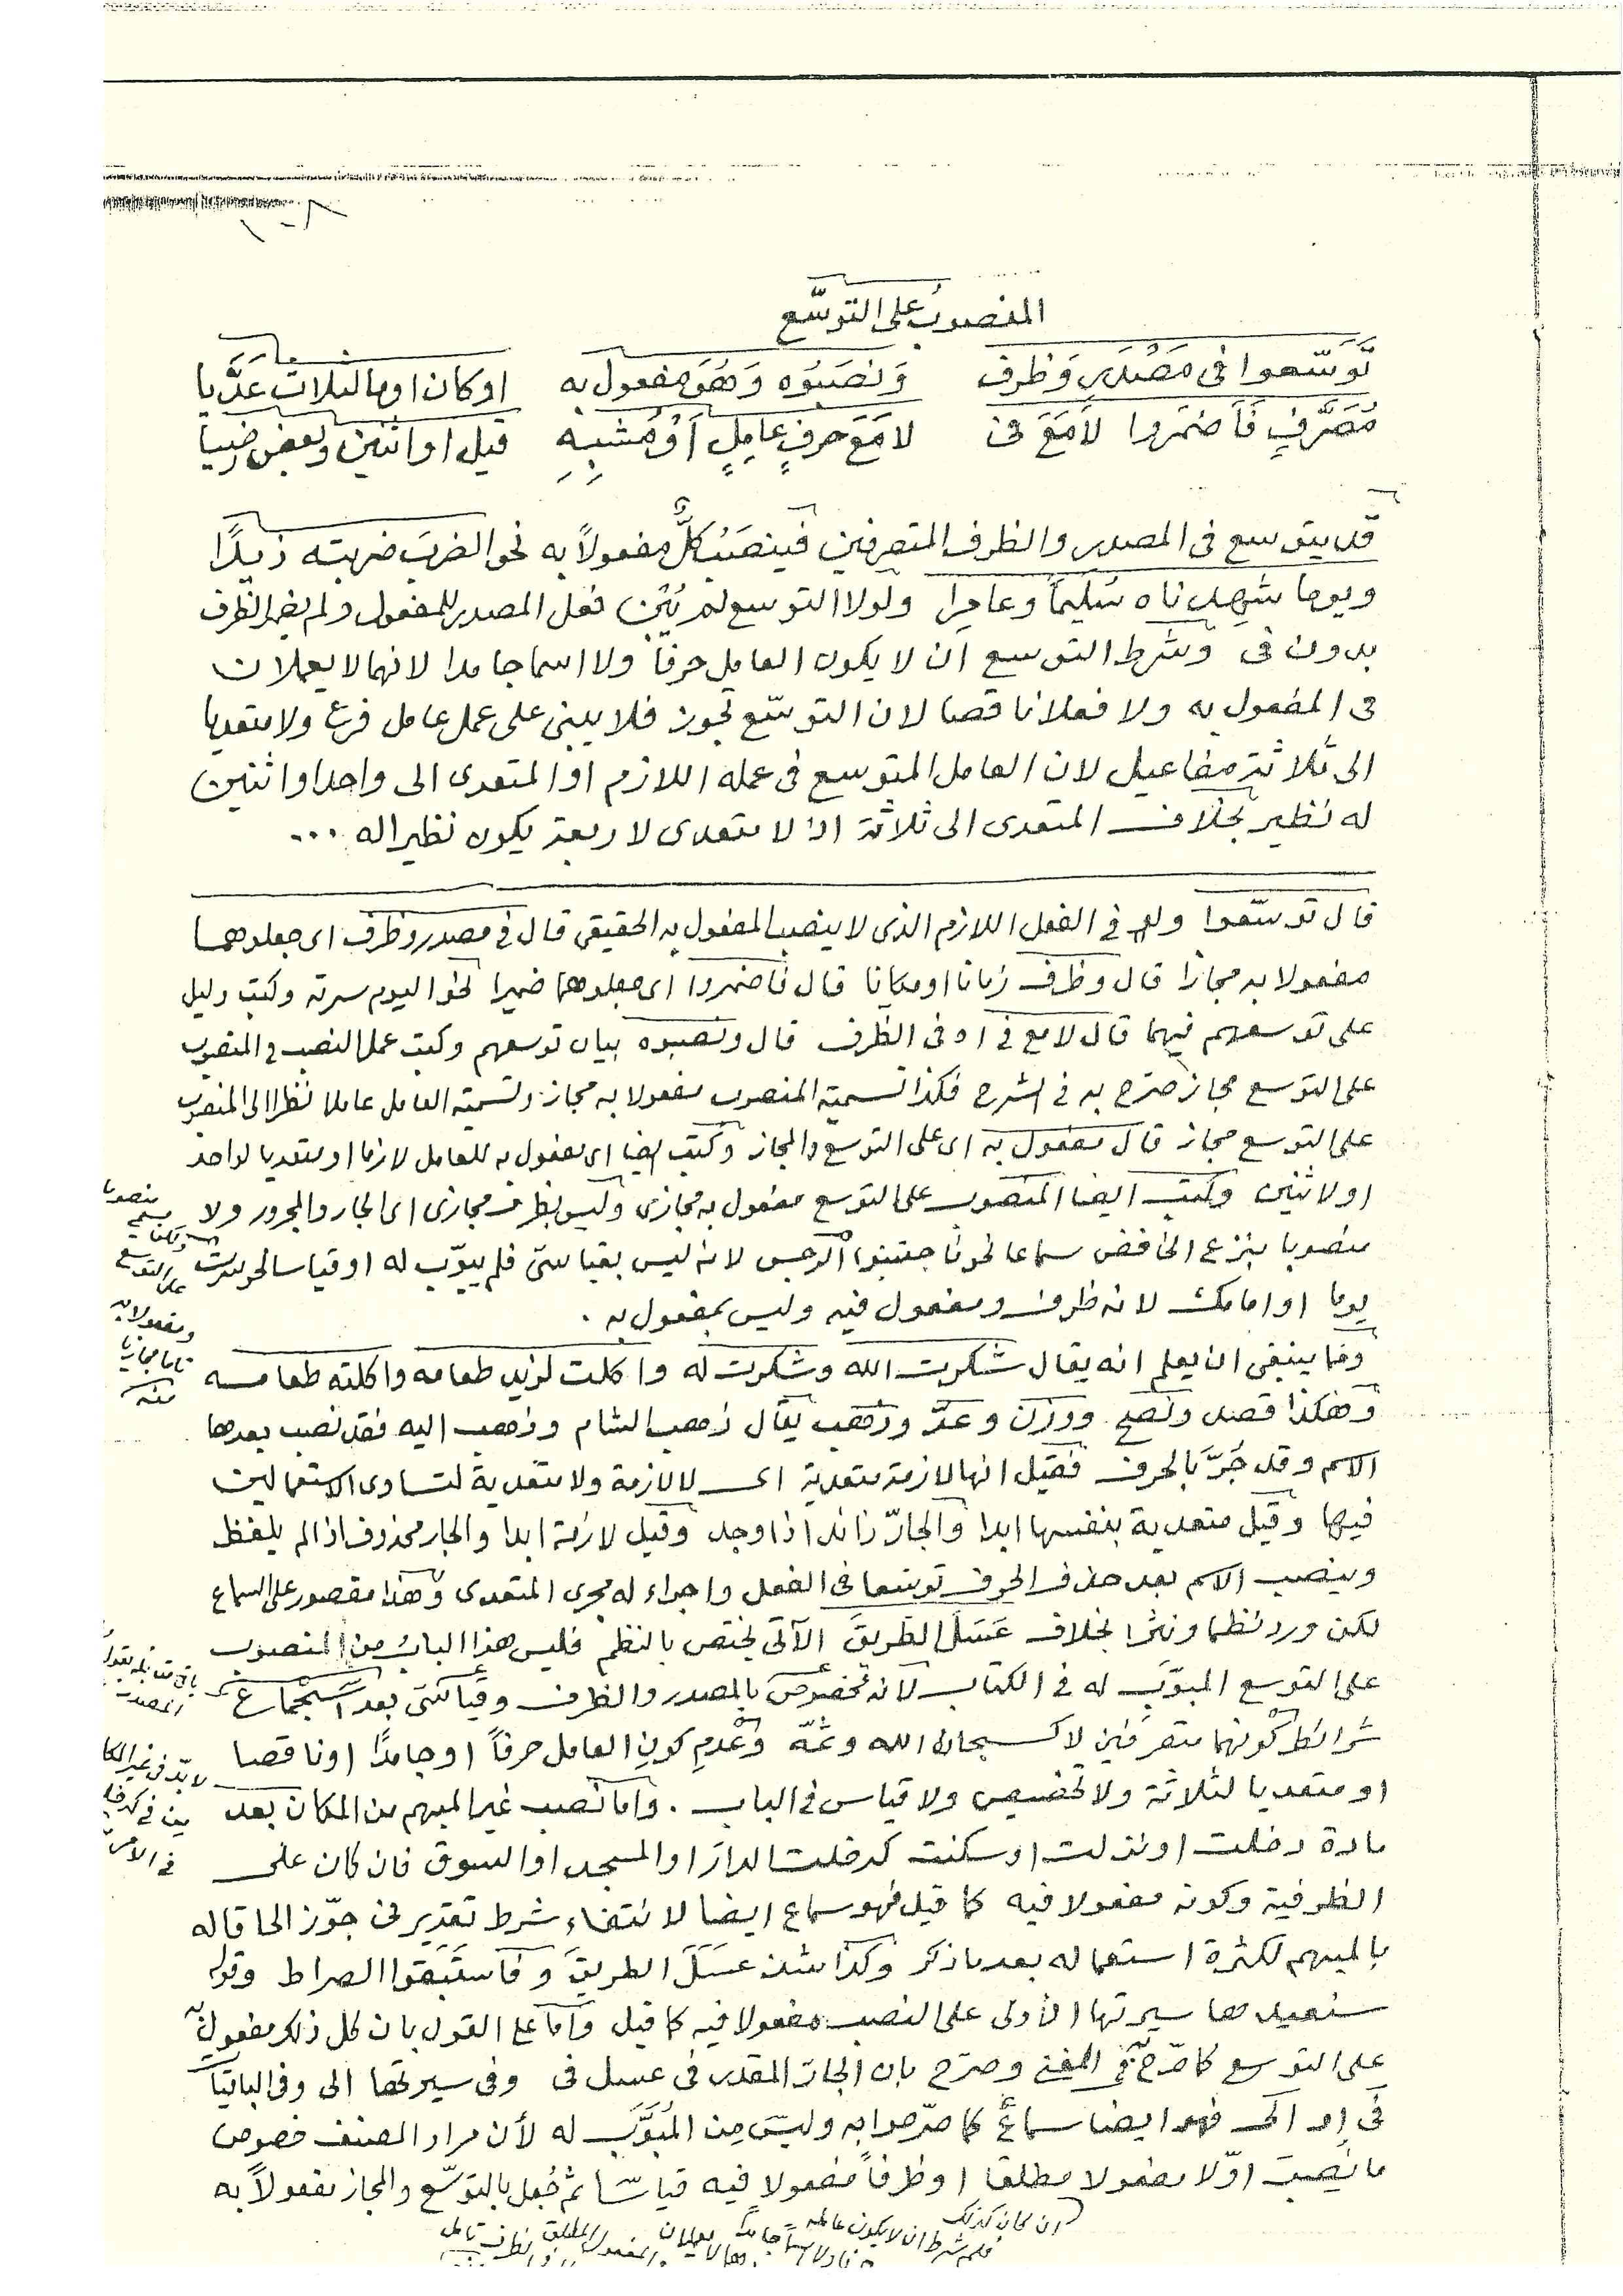 المنصوب على التوسّع
توَسّعوا فى مَصْدَرٍ وَظرف وَنصَبُوه وَهُوَ مفعول به اوكان اوما لثلاث عَدَّيا
مُصَرَّفٍ فَأضمَروا لاَمَعَ فى لاَمَعَ حرفٍ عامِلٍ أوْ مُشبِهِ قيل او اثنين وبعض رضيا
قد يتوسع فى المصدر والظرف المتصرفين فينصَبُ كلٌّ مفعولاً به نحو الضربَ ضربته زيدًا
ويوما شهدناه سُليمًا وعامِرا ولولا التوسع لم يُثَنّ فعل المصدر للمفعول ولم يضمر الظرف
بدون فى وشرط التوسع ان لا يكون العامل حرفًا ولا اسما جامدا لانهما لا يعملان
فى المفعول به ولا فعلا ناقصا لان التوسّع تجوز فلا يبنى على عمل عامل فرع ولا متعديا
الى ثلاثة مفاعيل لان العامل المتوسع فى عمله اللازم او المتعدى الى واحد او اثنين
له نظير بخلاف المتعدى الى ثلاثة اذ لا متعدى لاربعة يكون نظيرا له ...
قال توسّعوا ولو فى الفعل اللازم الذى لا ينصب المفعول به الحقيقى قال فى مصدر وظرف اى جعلوهما
مفعولا به مجازا قال وظرف زمانا او مكانا قال فأضمروا اى جعلوهما ضميرا نحو اليوم سرته وكتب دليل
على توسعهم فيهما قال لامع فى اى فى الظرف قال ونصبوه بيان توسعهم وكتب عمل النصب فى المنصوب
على التوسع مجاز صرّح به فى الشرح فكذا تسمية المنصوب مفعولا به مجاز وتسمية العامل عاملا نظرا الى المنصوب
على التوسع مجاز قال مفعول به اى على التوسع والمجاز وكتب ايضا اى مفعول به للعامل لازما او متعديا لواحد
او لاثنين وكتب ايضا المنصوب على التوسع مفعول به مجازى وليس بظرف مجازى اى الجار والمجرور ولا
منصوبا بنزع الخافض سماعا نحو فاجتنبوا الرجس لانه ليس بقياسىّ فلم يبوّب له او قياسا نحو سرت
يوما او امامك لانه ظرف ومفعول فيه وليس بمفعول به .
ومما ينبغى ان يعلم انه يقال شكرت الله وشكرت له واكلت لزيد طعامه واكلته طعامه
وهكذا قصد ونصح ووزن وعدّ وذهب يقال ذهب الشام وذهب اليه فقد نصب بعدها
الاسم وقد جُرَّ بالحرف فقيل انها لازمة متعدية اى لا لازمة ولا متعدية لتساوى الاستعمالين
فيها وقيل متعدية بنفسها ابدا والجارّ زائد اذا وجد وقيل لازمة ابدا والجار محذوف اذا لم يلفظ
وينصب الاسم بعد حذف الحرف توسّعا فى الفعل واجراء له مجرى المتعدى وهذا مقصور على السماع
لكن ورد نظما ونثرا بخلاف عَسَلَ الطريقَ الآتى يختص بالنظم فليس هذا البابُ من المنصوب
على التوسع المبوَّب له فى الكتاب لأنه مخصوصٌ بالمصدر والظرف وقياسىّ بعد استجماع
شرائط كونهما متصرفَين لا كسبحان الله وثمّه وعدمِ كونِ العامل حرفًا او جامدًا او ناقصا
او متعديا لثلاثة ولا تخصيص ولا قياس فى الباب . واما نصب غير المبهم من المكان بعد
مادة دخلت او نزلت او سكنت كدخلت الدارَ او المسجد او السوق فان كان على
الظرفية وكونه مفعولا فيه كما قيل فهو سماع ايضا لانتفاء شرط تقدير فى جوّز الحاقا له
بالمبهم لكثرة استعماله بعد ما ذكر وكذا شذ عَسَلَ الطريقَ وفاستَبَقوا الصراط وقوله
سنعيدها سيرتها الأولى على النصب مفعولا فيه كما قيل وأما على القول بان كل ذلك مفعول به
على التوسع كما صرّح به فى المغنى وصرّح بان الجارّ المقدر فى عسل فى وفى سيرتها الى وفى الباقيات
فى او الى فهو ايضا سماعٌ كما صرّحوا به وليسَ مِن المُبَوَّب له لأن مراد المصنف خصوص
ما نُصِبَ اوّلا مفعولا مطلقا او ظرفاً مفعولا فيه قياسًا ثم جُعل بالتوسّع والمجاز مفعولاً به
ان كان كذلك